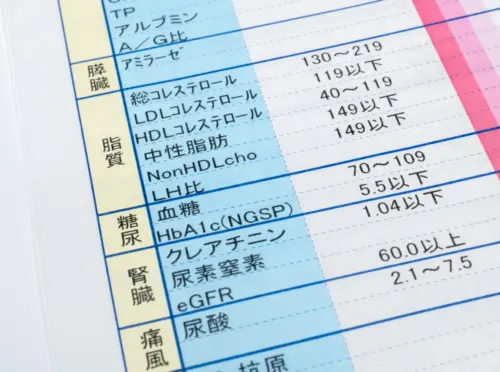 TP
アルブミン
A/G比
膵臓 アミラーゼ
脂質 総コレステロール 130～219
LDLコレステロール 119以下
HDLコレステロール 40～119
中性脂肪 149以下
NonHDLcho 149以下
LH比
糖尿 血糖 70～109
HbA1c(NGSP) 5.5以下
腎臓 クレアチニン 1.04以下
尿素窒素
eGFR 60.0以上
痛風 尿酸 2.1～7.5
抗原